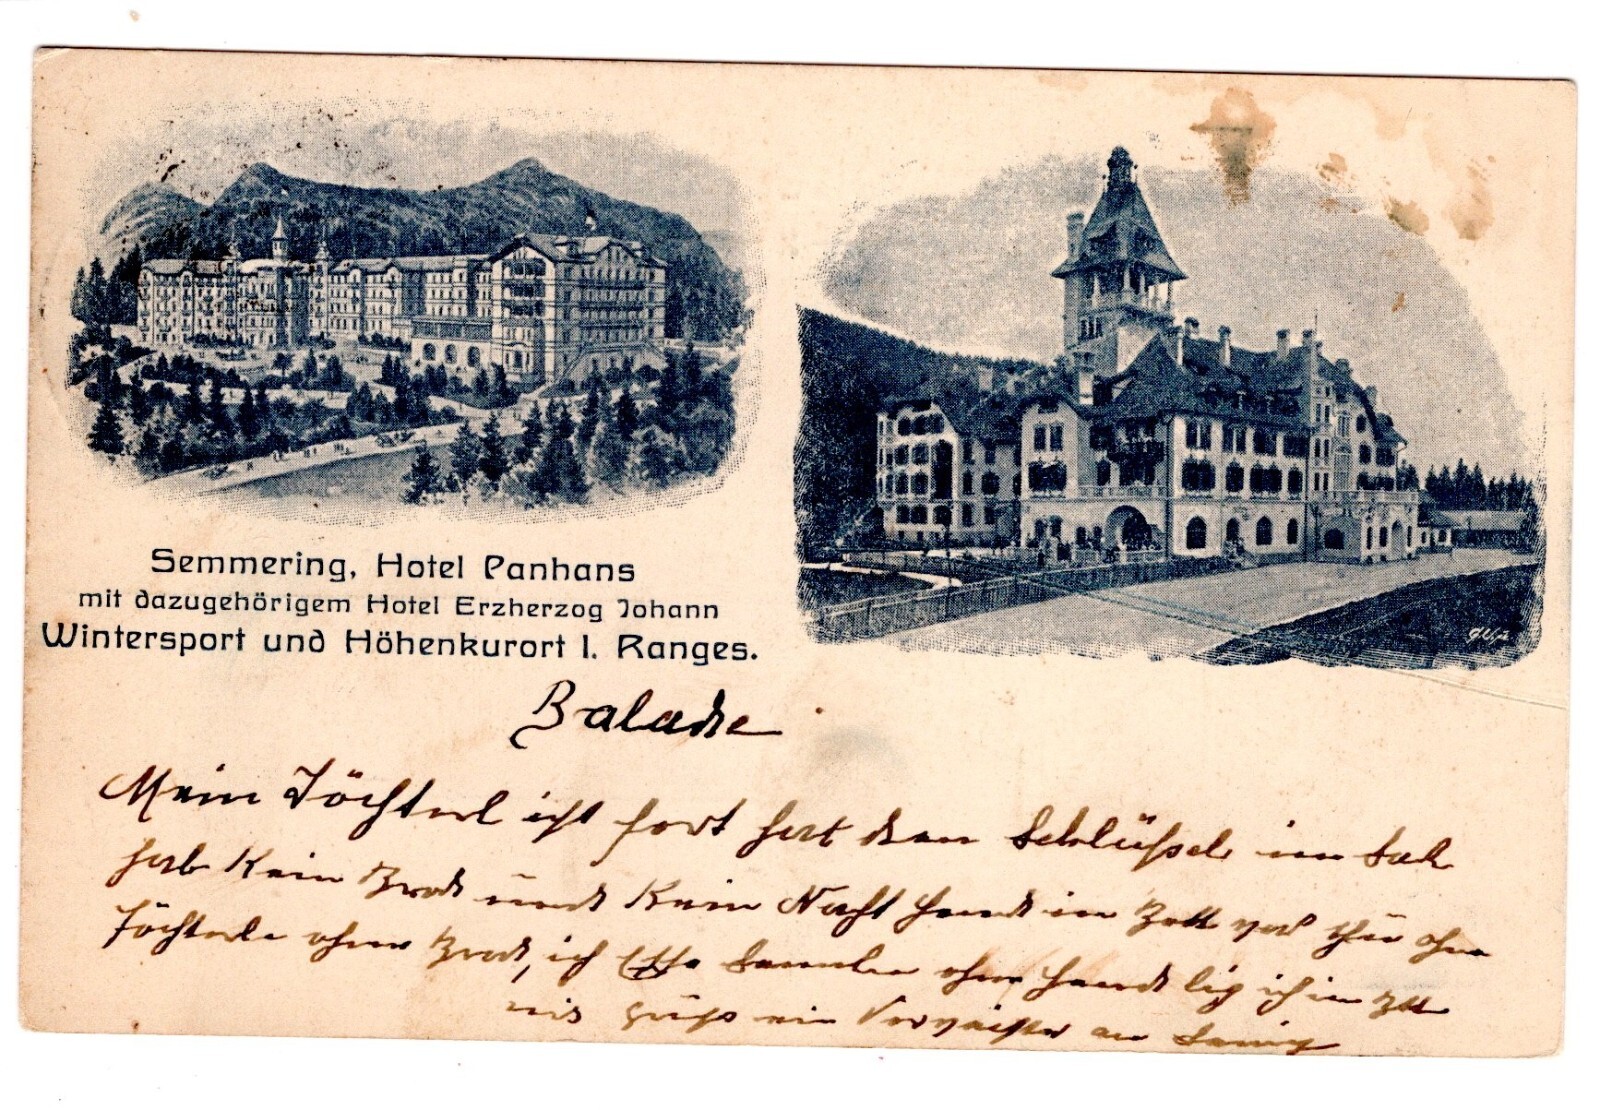 Semmering, Hotel Panhans
mit dazugehörigem Hotel Erzherzog Johann
Wintersport und Höhenkurort I. Ranges.
Balade
Mein Töchterl ist fort hat den Schlüssel im Sak
hab kein Brod und kein Nacht Hemd im Bett vor ohne
Töchterle ohne Brod, ich Semmeln ohne Hemd lig ich im Bett
ein an